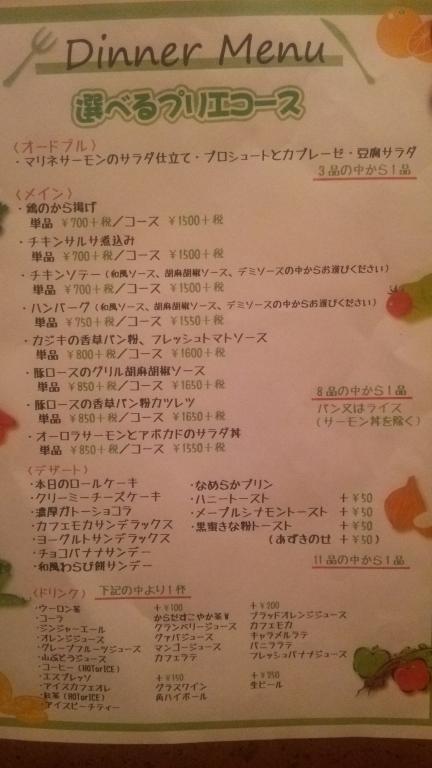 Dinner Menu
選べるプリエコース
〈オードブル〉
・マリネサーモンのサラダ仕立て・プロシュートとカプレーゼ・豆腐サラダ
3品の中から1品
〈メイン〉
・鶏のから揚げ
単品 ￥700＋税／コース ￥1500＋税
・チキンサルサ煮込み
単品 ￥700＋税／コース ￥1500＋税
・チキンソテー（和風ソース、胡麻胡椒ソース、デミソースの中からお選びください）
単品 ￥700＋税／コース ￥1500＋税
・ハンバーグ（和風ソース、胡麻胡椒ソース、デミソースの中からお選びください）
単品 ￥750＋税／コース ￥1550＋税
・カジキの香草パン粉、フレッシュトマトソース
単品 ￥800＋税／コース ￥1600＋税
・豚ロースのグリル胡麻胡椒ソース
単品 ￥850＋税／コース ￥1650＋税
・豚ロースの香草パン粉カツレツ
単品 ￥850＋税／コース ￥1650＋税
・オーロラサーモンとアボカドのサラダ丼
単品 ￥850＋税／コース ￥1550＋税
8品の中から1品
パン又はライス
（サーモン丼を除く）
〈デザート〉
・本日のロールケーキ
・クリーミーチーズケーキ
・濃厚ガトーショコラ
・カフェモカサンデラックス
・ヨーグルトサンデラックス
・チョコバナナサンデー
・和風わらび餅サンデー
・なめらかプリン
・ハニートースト ＋￥50
・メープルシナモントースト ＋￥50
・黒蜜きな粉トースト ＋￥50
（あずきのせ ＋￥50）
11品の中から1品
〈ドリンク〉 下記の中より1杯
・ウーロン茶
・コーラ
・ジンジャーエール
・オレンジジュース
・グレープフルーツジュース
・山ぶどうジュース
・コーヒー（HOTorICE）
・エスプレッソ
・アイスカフェオレ
・紅茶（HOTorICE）
・アイスピーチティー
＋￥100
からだすこやか茶W
クランベリージュース
グァバジュース
マンゴージュース
カフェラテ
＋￥150
グラスワイン
角ハイボール
＋￥200
ブラッドオレンジジュース
カフェモカ
キャラメルラテ
バニララテ
フレッシュバナナジュース
＋￥250
生ビール